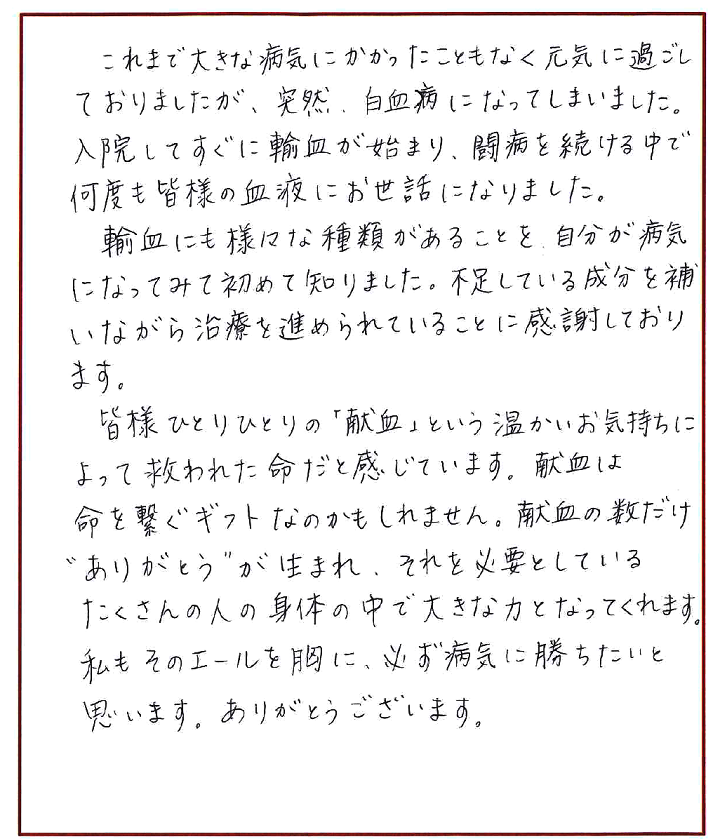 これまで大きな病気にかかったこともなく元気に過ごし
ておりましたが、突然、白血病になってしまいました。
入院してすぐに輸血が始まり、闘病を続ける中で
何度も皆様の血液にお世話になりました。
輸血にも様々な種類があることを、自分が病気
になってみて初めて知りました。不足している成分を補
いながら治療を進められていることに感謝しており
ます。
皆様ひとりひとりの「献血」という温かいお気持ちに
よって救われた命だと感じています。献血は
命を繋ぐギフトなのかもしれません。献血の数だけ
“ありがとう”が生まれ、それを必要としている
たくさんの人の身体の中で大きな力となってくれます。
私もそのエールを胸に、必ず病気に勝ちたいと
思います。ありがとうございます。